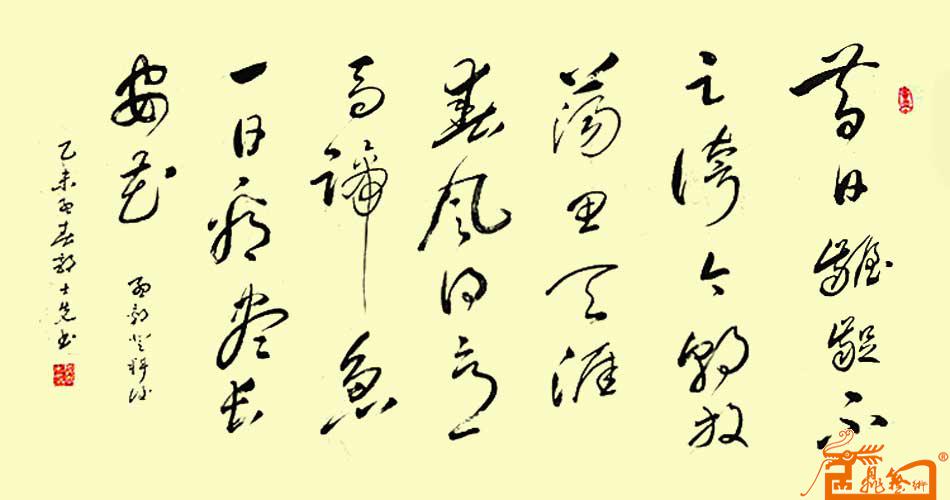 昔日齷齪不
足誇今朝放
蕩思无涯
春风得意
马蹄疾
一日看尽长
安花
孟郊登科后
乙未孟春 士 书